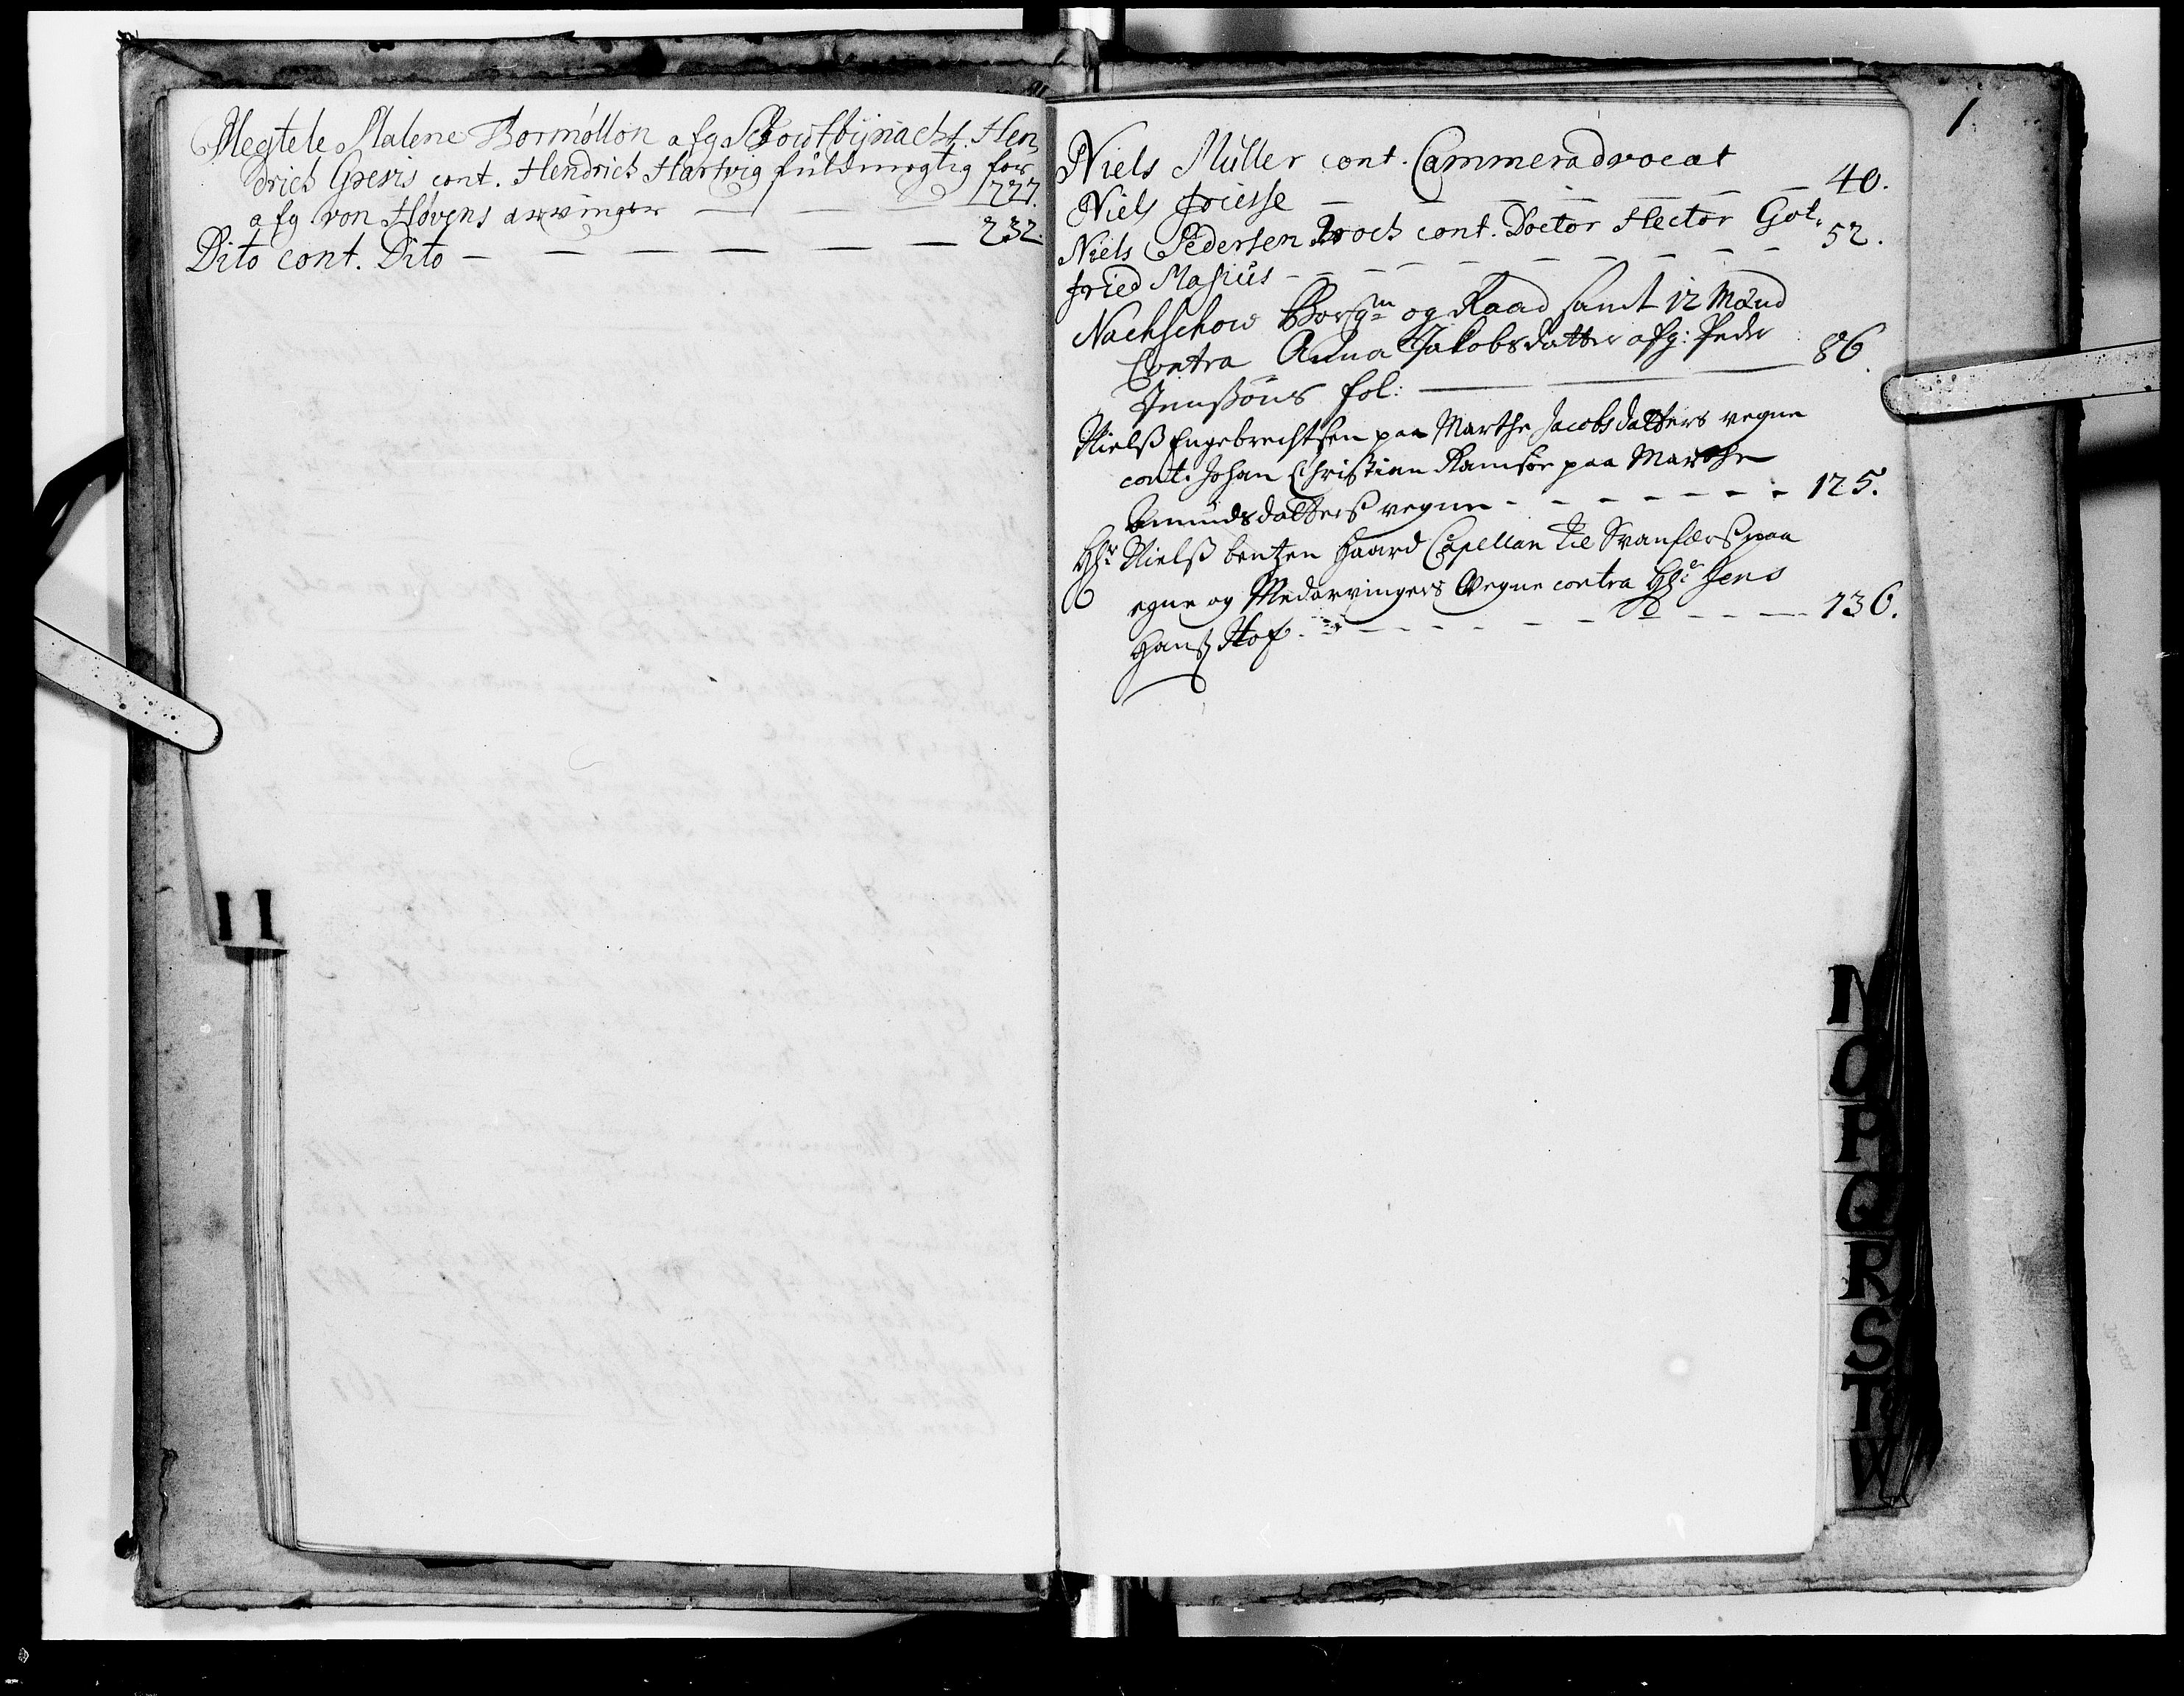 Megtele Malene Bormøllon afg Schowtbÿnacht Hen
drich Grevis cont. Hendrich Hartvig füldmegtig for
afg von Høvens arvinger — — — 227.
Dito cont. Dito — — — — — — 232.
11
1
Niels Müller cont. Cammeradvocat
Niels Friesse — — — — — — 40.
Niels Pedersen Broch cont. Doctor Hector Got„
fried Masius - - - - - - - - 52.
Nachschow Borgm og Raad samt 12 Mænd
Contra Anna Jakobsdatter afg: Peder
Jenssøns fol: — — — 86.
Nielss Engebrechtsen paa Marthe Jacobsdatters vegne
cont. Johan Christian Ramsøe paa Marthe
Amundsdatterss vegne - - - - - - - 125.
Hr Nielss bentzen Haard Capellan til paa
egne og Medarvingers Vegne contra Hr Jens
Hanss Hof - - - - - - - - - 136.
N
O
P
Q
R
S
T
W